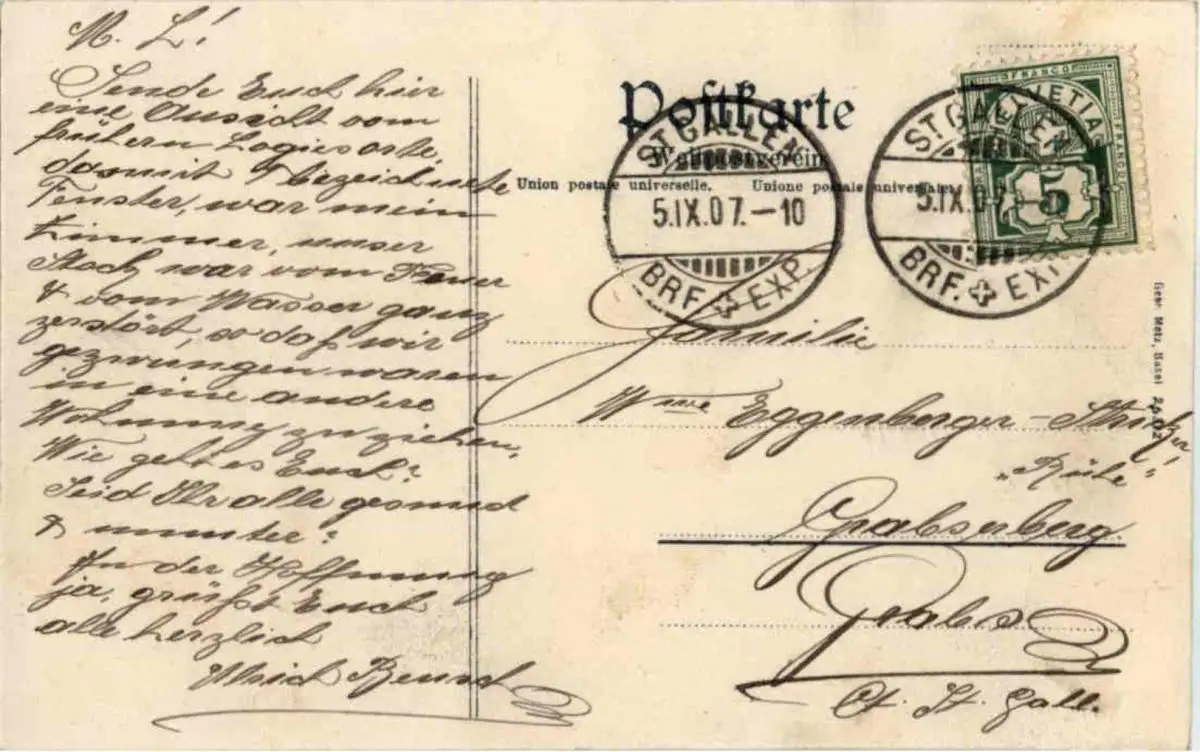 M. L!
Sende Euch hier
eine Ansicht vom
frühern Logisorte,
damit 1 bezeichnete
Fenster, war mein
Zimmer, unser
Stock war vom Feuer
& vom Wasser ganz
zerstört, so daß wir
gezwungen waren
in eine andere
Wohnung zu ziehen.
Wie geht es Euch?
Seid Ihr alle gesund
& munter?
In der Hoffnung
ja, grüßt Euch
alle herzlich
Ulrich
Postkarte
Weltpostverein
Union postale universelle. Unione postale universale.
ST. GALLEN
5.IX.07.-10
BRF. EXP.
ST. GALLEN
5.IX.07.-10
BRF. EXP.
FRANCO
HELVETIA
FRANCO
5
Familie
Wwe Eggenberger-
Grabserberg
Grabs
Ct. St. Gall.
Gebr. Metz, Basel